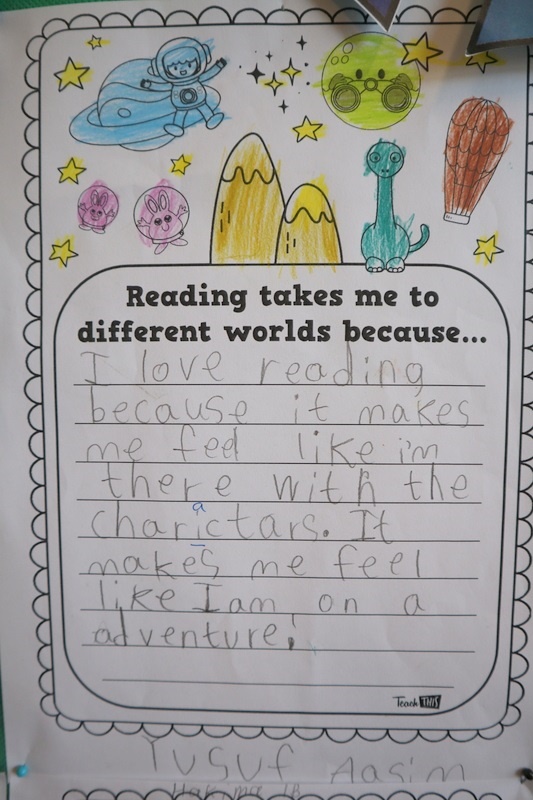 Reading takes me to
different worlds because...
I love reading
because it makes
me feel like i'm
there with the
charictars. It
a
makes me feel
like I am on a
adventure!
Teach THIS
Yusuf Aasim